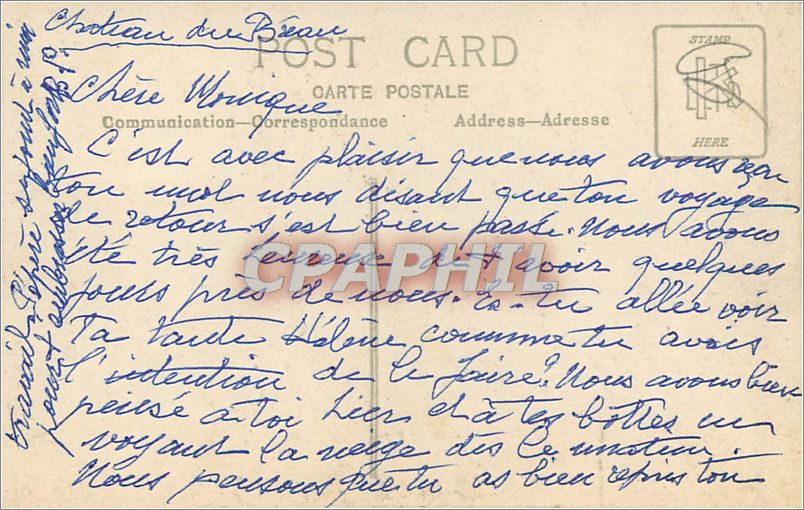 Chateau du Bréau
POST CARD
CARTE POSTALE
Communication—Correspondance
Address—Adresse
STAMP
HERE
Chère Monique
C'est avec plaisir que nous avons reçu
ton mot nous disant que ton voyage
de retour s'est bien passé. Nous avons
été très heureuse de t avoir quelques
jours près de nous. Es-tu allée voir
Ta tante Hélène comme tu avais
l'intention de le faire? Nous avons bien
pensé à toi hier et à tes bottes en
voyant la neige dès le matin.
Nous pensons que tu as bien repris ton
travail. Pépère se joint à moi
pour t embrasser bien fort
CPAPHIL